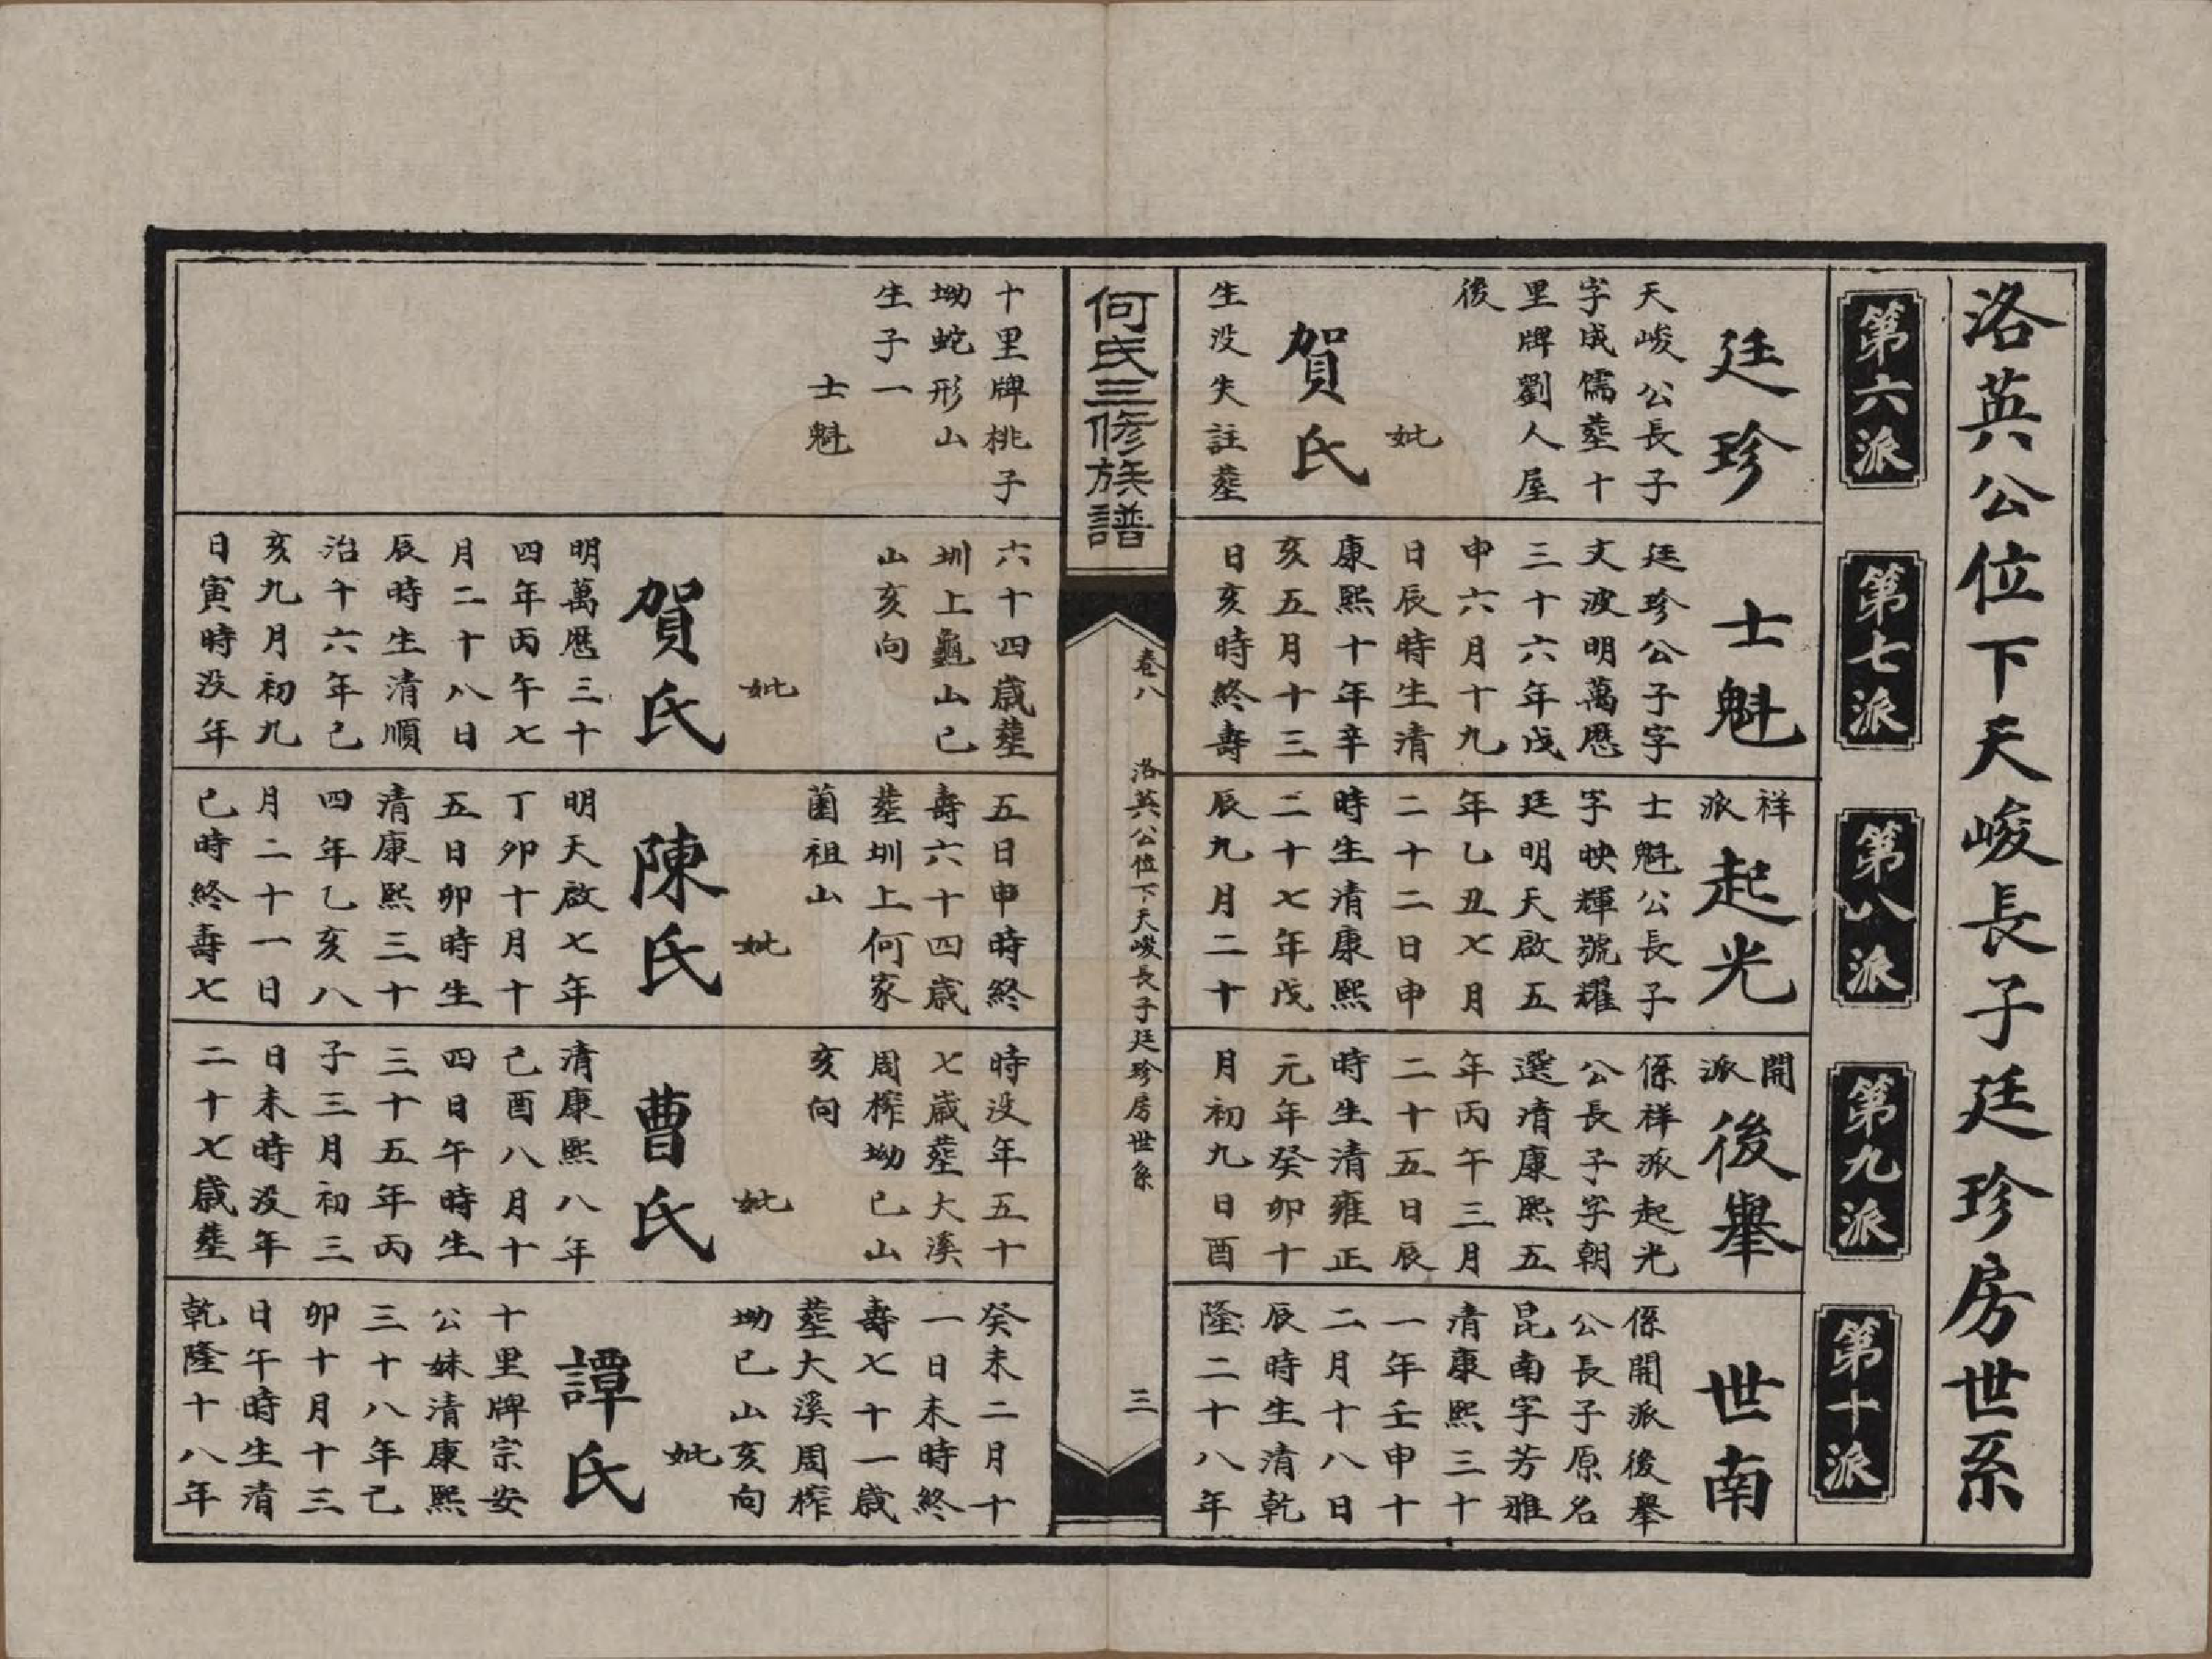 洛英公位下天峻長子廷珍房世系
第六派
第七派
第八派
第九派
第十派
廷珍
天峻公長子
字成儒塟十
里牌劉人屋
後
妣
賀氏
生没失註塟
士魁
廷珍公子字
文波明萬厯
三十六年戊
申六月十九
日辰時生清
康熙十年辛
亥五月十三
日亥時終壽
祥派
起光
士魁公長子
字映輝號耀
廷明天啟五
年乙丑七月
二十二日申
時生清康熙
二十七年戊
辰九月二十
開派
後舉
係祥派起光
公長子字朝
選清康熙五
年丙午三月
二十五日辰
時生清雍正
元年癸卯十
月初九日酉
世南
係開派後舉
公長子原名
昆南字芳雅
清康熙三十
一年壬申十
二月十八日
辰時生清乾
隆二十八年
何氏三修族譜
卷八
洛英公位下天峻長子廷珍房世系
三
十里牌桃子
坳蛇形山
生子一
士魁
六十四歲塟
圳上龜山巳
山亥向
妣
賀氏
明萬厯三十
四年丙午七
月二十八日
辰時生清順
治十六年己
亥九月初九
日寅時没年
五日申時終
壽六十四歲
塟圳上何家
菌祖山
妣
陳氏
明天啟七年
丁卯十月十
五日卯時生
清康熙三十
四年乙亥八
月二十一日
巳時終壽七
時没年五十
七歲塟大溪
周榨坳巳山
亥向
妣
曹氏
清康熙八年
己酉八月十
四日午時生
三十五年丙
子三月初三
日未時没年
二十七歲塟
癸未二月十
一日未時終
壽七十一歲
塟大溪周榨
坳巳山亥向
妣
譚氏
十里牌宗安
公妹清康熙
三十八年己
卯十月十三
日午時生清
乾隆十八年